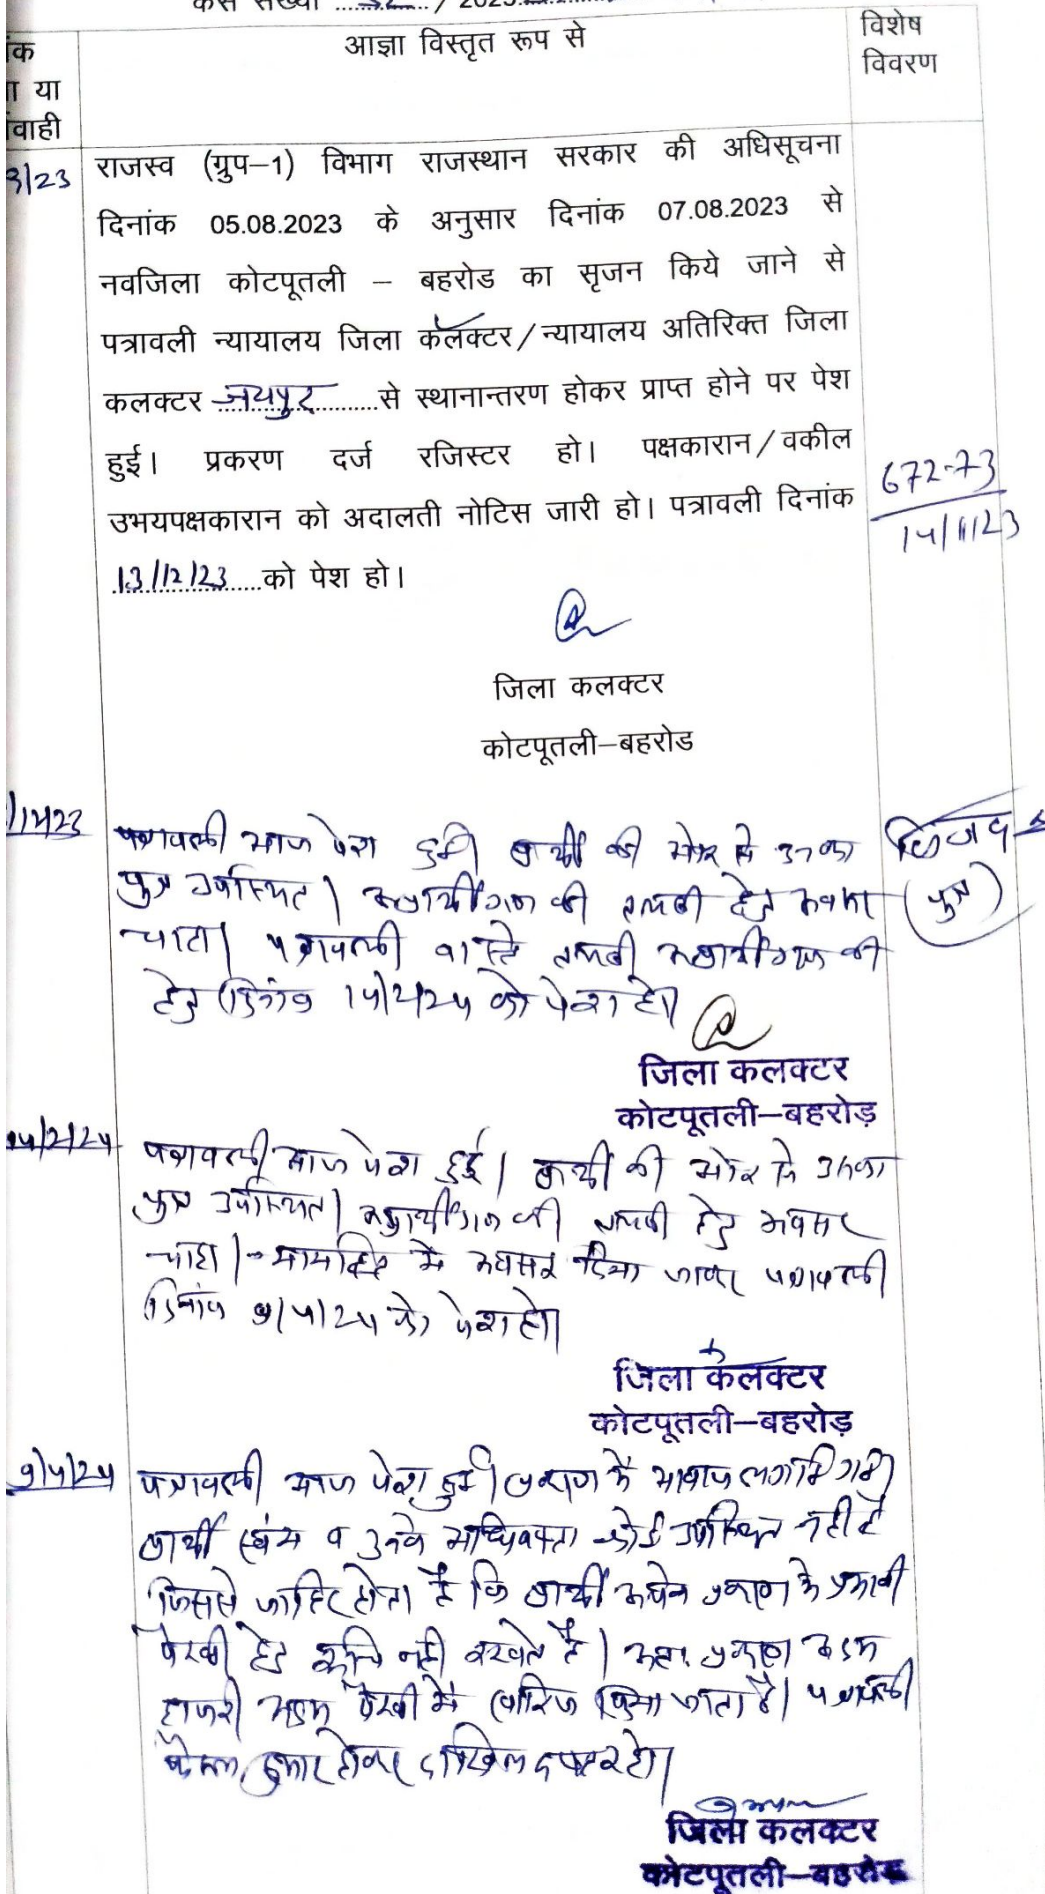 केस संख्या ............/ 2023
आज्ञा विस्तृत रूप से
विशेष
विवरण
या
वाही
3/23
राजस्व (ग्रुप–1) विभाग राजस्थान सरकार की अधिसूचना
दिनांक 05.08.2023 के अनुसार दिनांक 07.08.2023 से
नवजिला कोटपूतली – बहरोड का सृजन किये जाने से
पत्रावली न्यायालय जिला कॅलेक्टर/न्यायालय अतिरिक्त जिला
कलक्टर जयपुर से स्थानान्तरण होकर प्राप्त होने पर पेश
हुई। प्रकरण दर्ज रजिस्टर हो। पक्षकारान/वकील
उभयपक्षकारान को अदालती नोटिस जारी हो। पत्रावली दिनांक
13/12/23 को पेश हो।
672-73
14/11/23
जिला कलक्टर
कोटपूतली–बहरोड
पत्रावली आज पेश हुई। प्रार्थी की ओर से उनका
पुत्र उपस्थित। अप्रार्थीगण की तलबी हेतु अवसर
चाहा। पत्रावली वास्ते तलबी अप्रार्थीगण की
हेतु दिनांक 14/2/24 को पेश हो।
(पुत्र)
जिला कलक्टर
कोटपूतली–बहरोड़
14/2/24
पत्रावली आज पेश हुई। प्रार्थी की ओर से उनका
पुत्र उपस्थित। अप्रार्थीगण की तलबी हेतु अवसर
चाहा। न्यायहित में अवसर दिया जाकर पत्रावली
दिनांक 9/4/24 को पेश हो।
जिला कलक्टर
कोटपूतली–बहरोड़
9/4/24
पत्रावली आज पेश हुई। प्रकरण में आवाज लगायी गयी।
प्रार्थी स्वंय व उनके अधिवक्ता कोई उपस्थित नहीं है
जिससे जाहिर होता है कि प्रार्थी अपने प्रकरण के प्रभावी
पैरवी हेतु रूचि नही रखते है। अतः प्रकरण अदम
हाजरी अदम पैरवी में खारिज किया जाता है। पत्रावली
फैसल शुमार होकर दाखिल दफ्तर हो।
जिला कलक्टर
कोटपूतली–बहरोड़